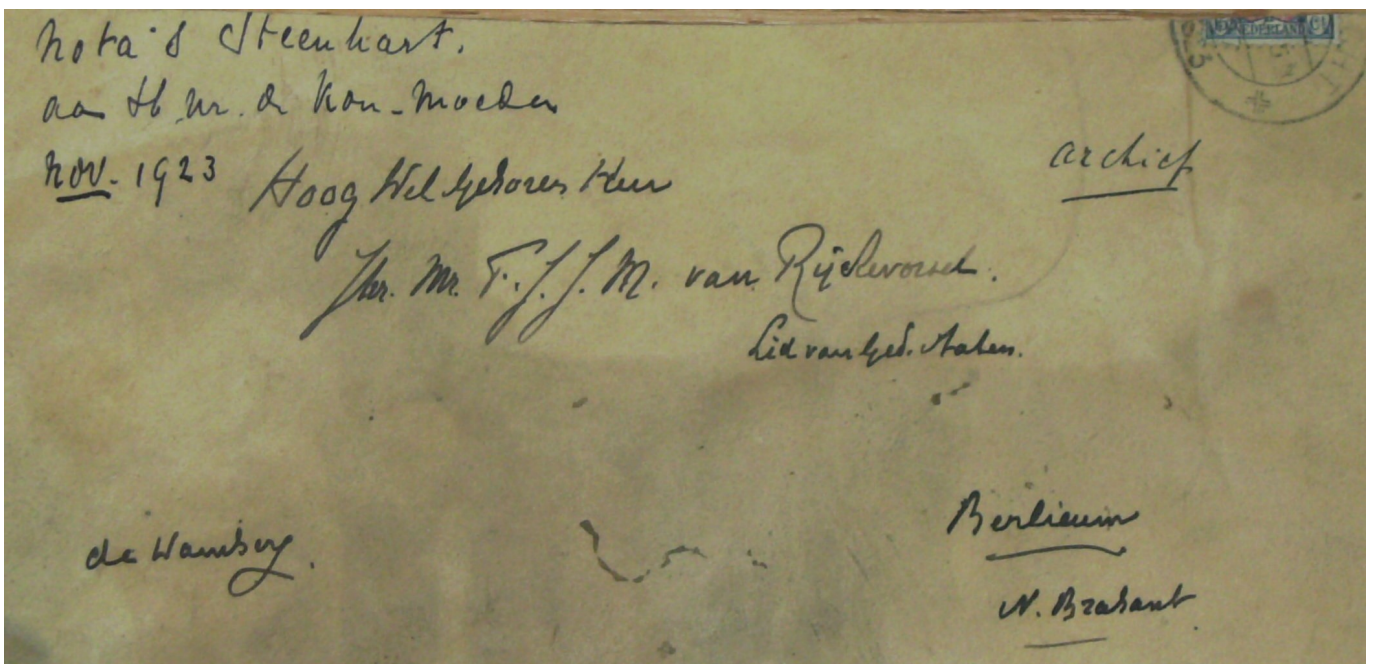 Nota's Steenhart.
aan H.M. de Kon. Moeder
Nov. 1923
archief
Hoog Wel Geboren Heer
Jhr. Mr. F. J. J. M. van Rijckevorsel.
Lid van Ged. Staten.
de Wamberg.
Berlicum
N. Brabant
NEDERLAND